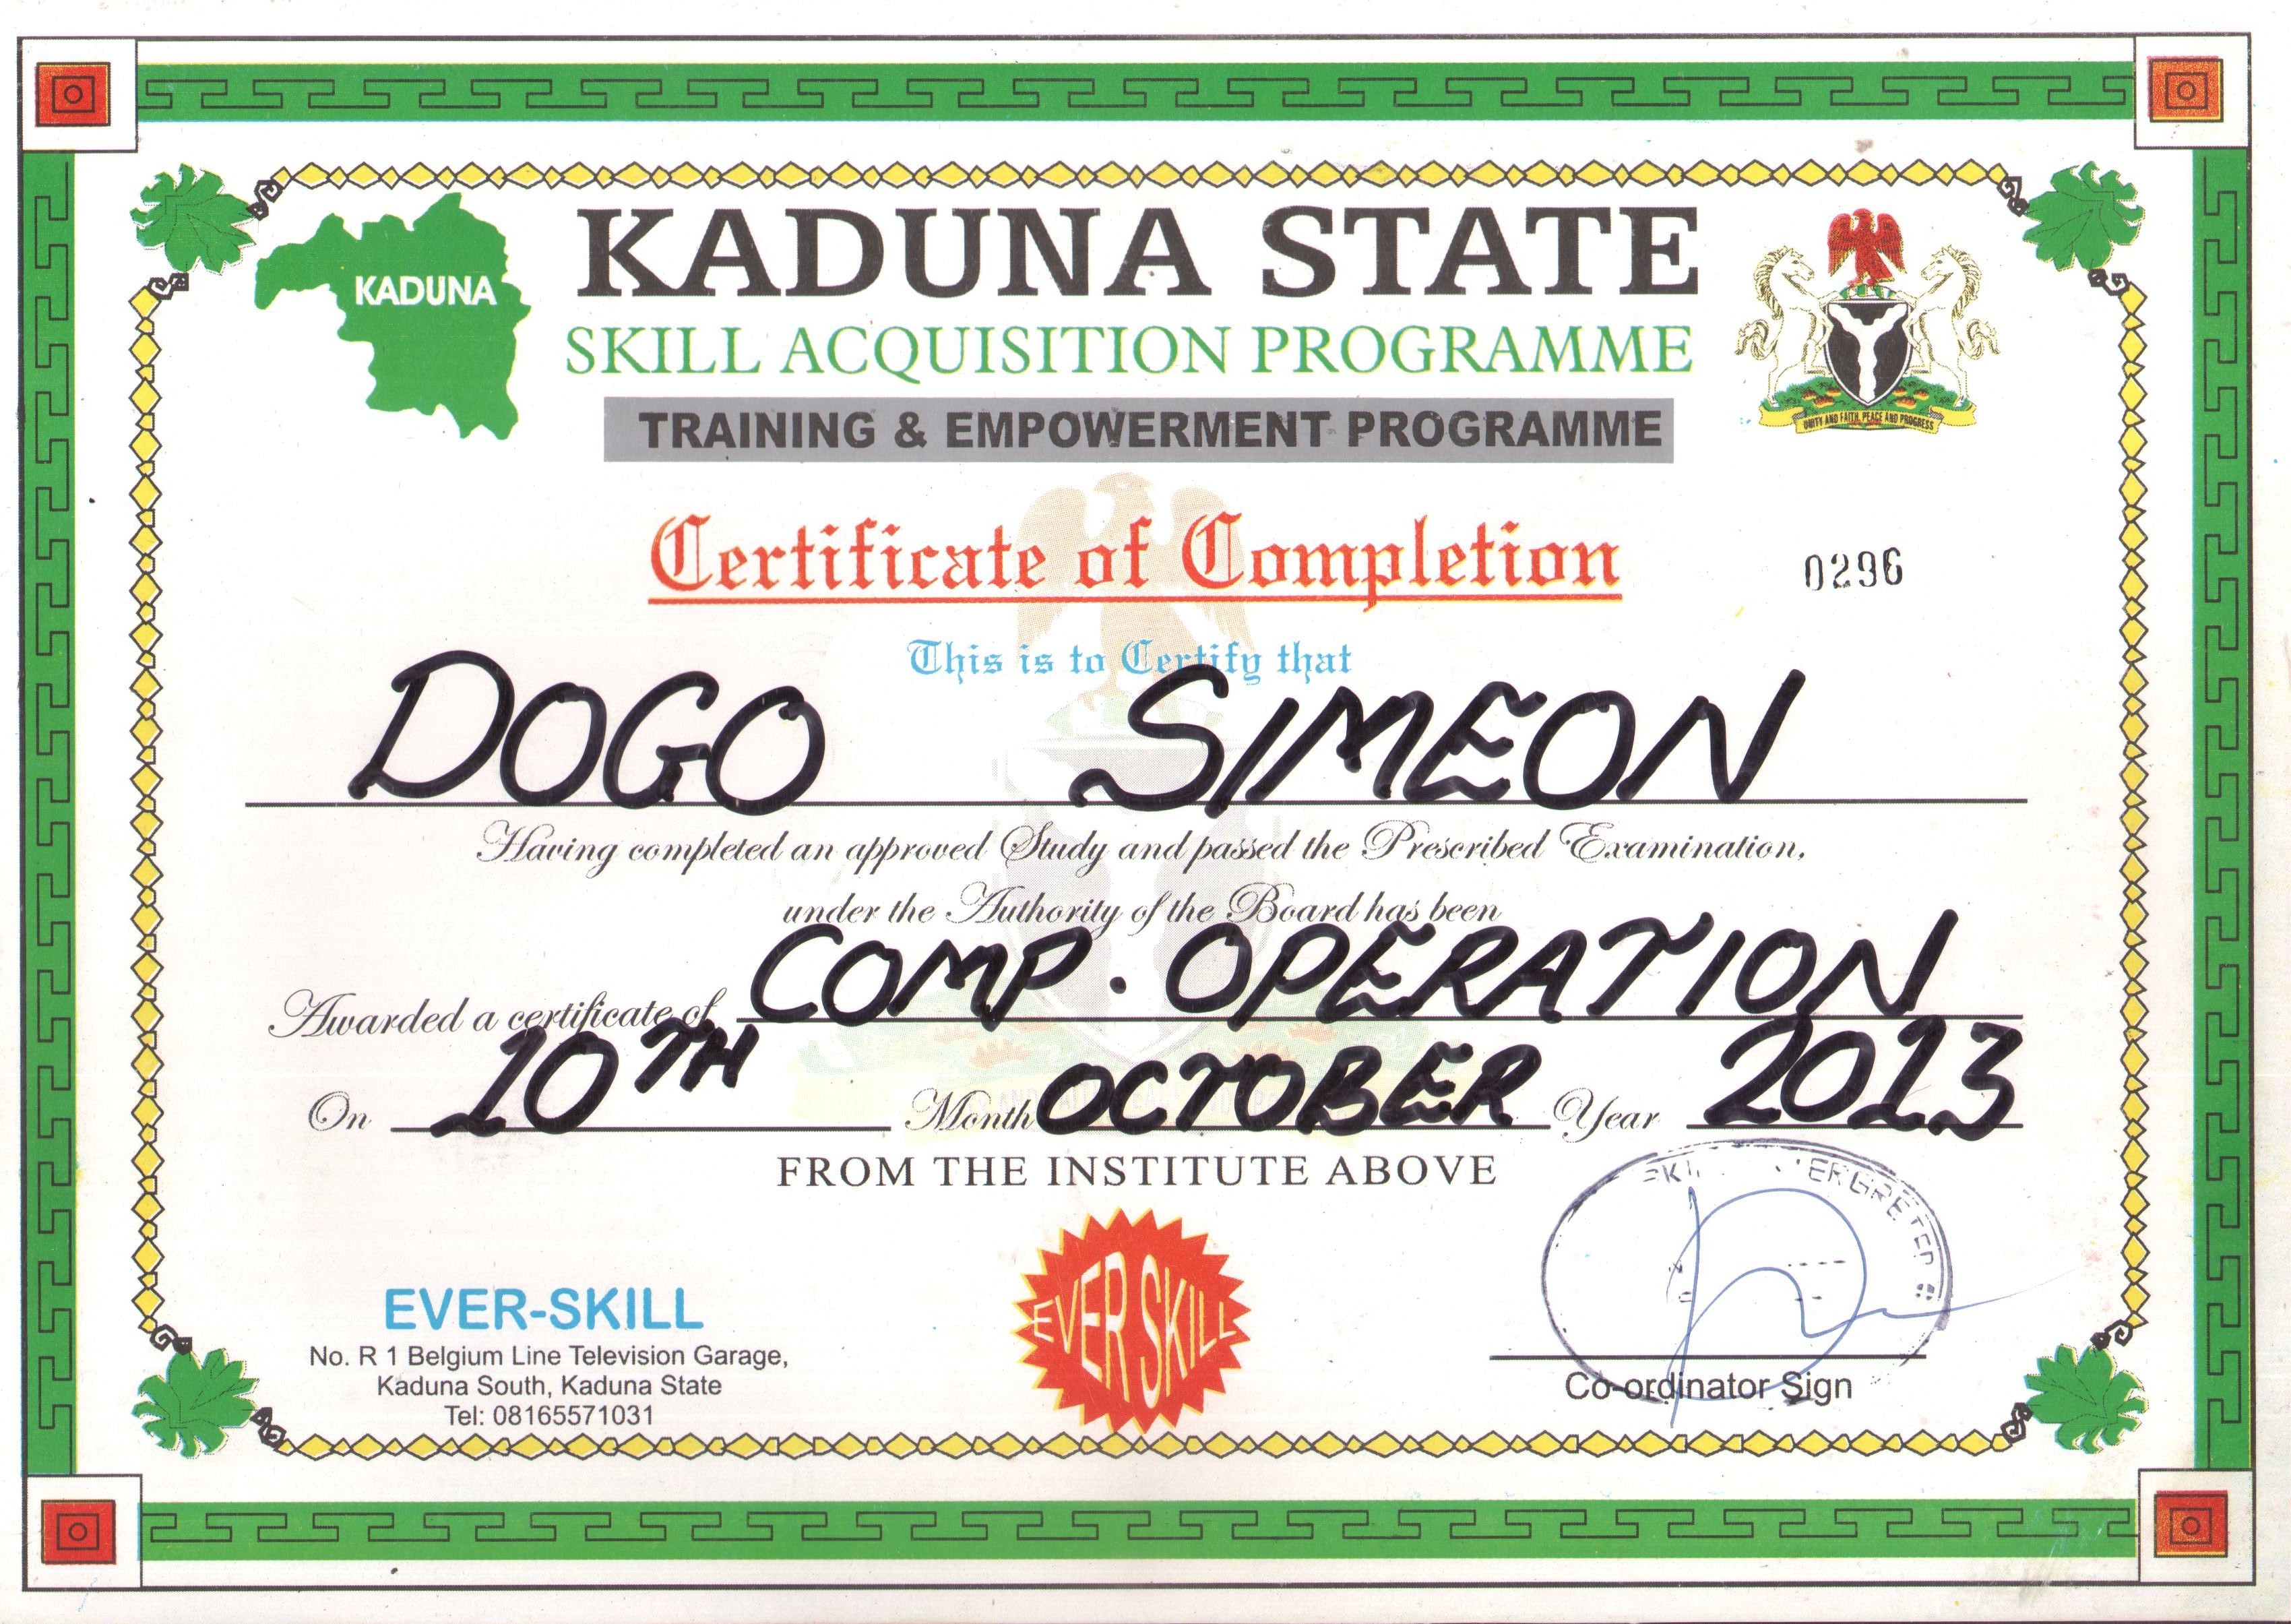 KADUNA
KADUNA STATE
SKILL ACQUISITION PROGRAMME
TRAINING & EMPOWERMENT PROGRAMME
UNITY AND FAITH, PEACE AND PROGRESS
Certificate of Completion
0296
This is to Certify that
DOGO SIMEON
Having completed an approved Study and passed the Prescribed Examination,
under the Authority of the Board has been
Awarded a certificate of COMP. OPERATION
On 10TH Month OCTOBER Year 2013
FROM THE INSTITUTE ABOVE
EVER-SKILL
No. R 1 Belgium Line Television Garage,
Kaduna South, Kaduna State
Tel: 08165571031
EVER SKILL
Co-ordinator Sign